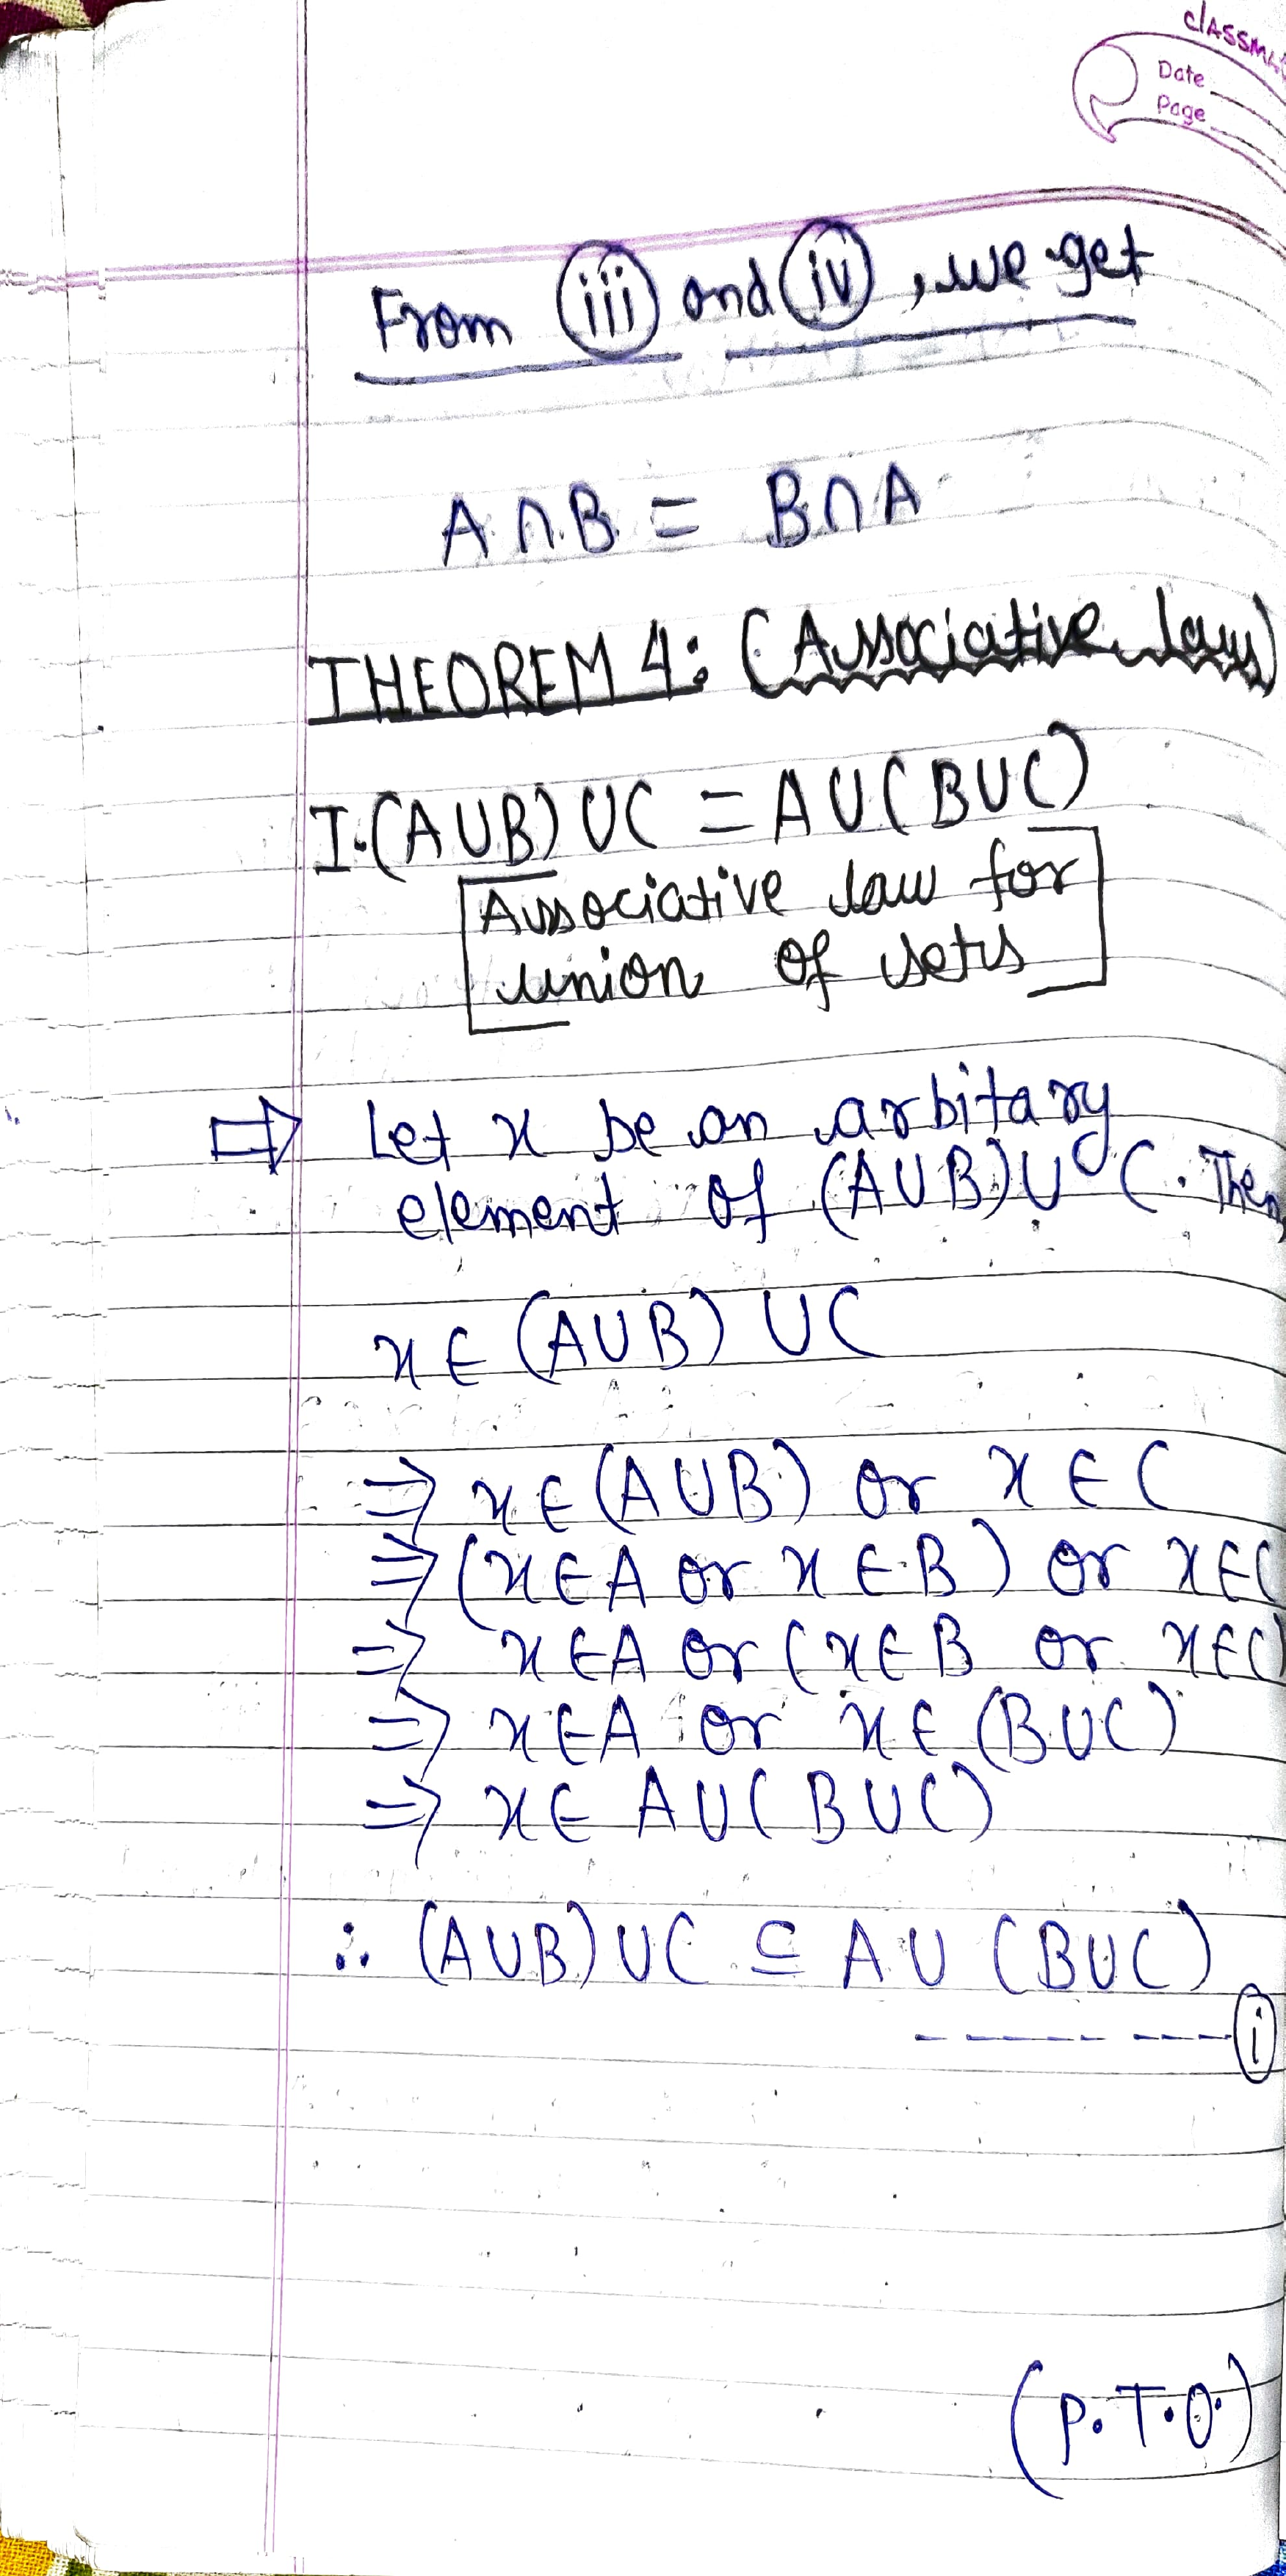 classma
Date
Page
From (iii) and (iv), we get
A ∩ B = B ∩ A
THEOREM 4: (Associative laws)
I. (A ∪ B) ∪ C = A ∪ (B ∪ C)
[Associative law for
union of sets]
⇒ Let x be an arbitary
element of (A ∪ B) ∪ C. Then
x ∈ (A ∪ B) ∪ C
⇒ x ∈ (A ∪ B) or x ∈ C
⇒ (x ∈ A or x ∈ B) or x ∈ C
⇒ x ∈ A or (x ∈ B or x ∈ C)
⇒ x ∈ A or x ∈ (B ∪ C)
⇒ x ∈ A ∪ (B ∪ C)
∴ (A ∪ B) ∪ C ⊆ A ∪ (B ∪ C)
- - - - - - (i)
(P.T.O.)